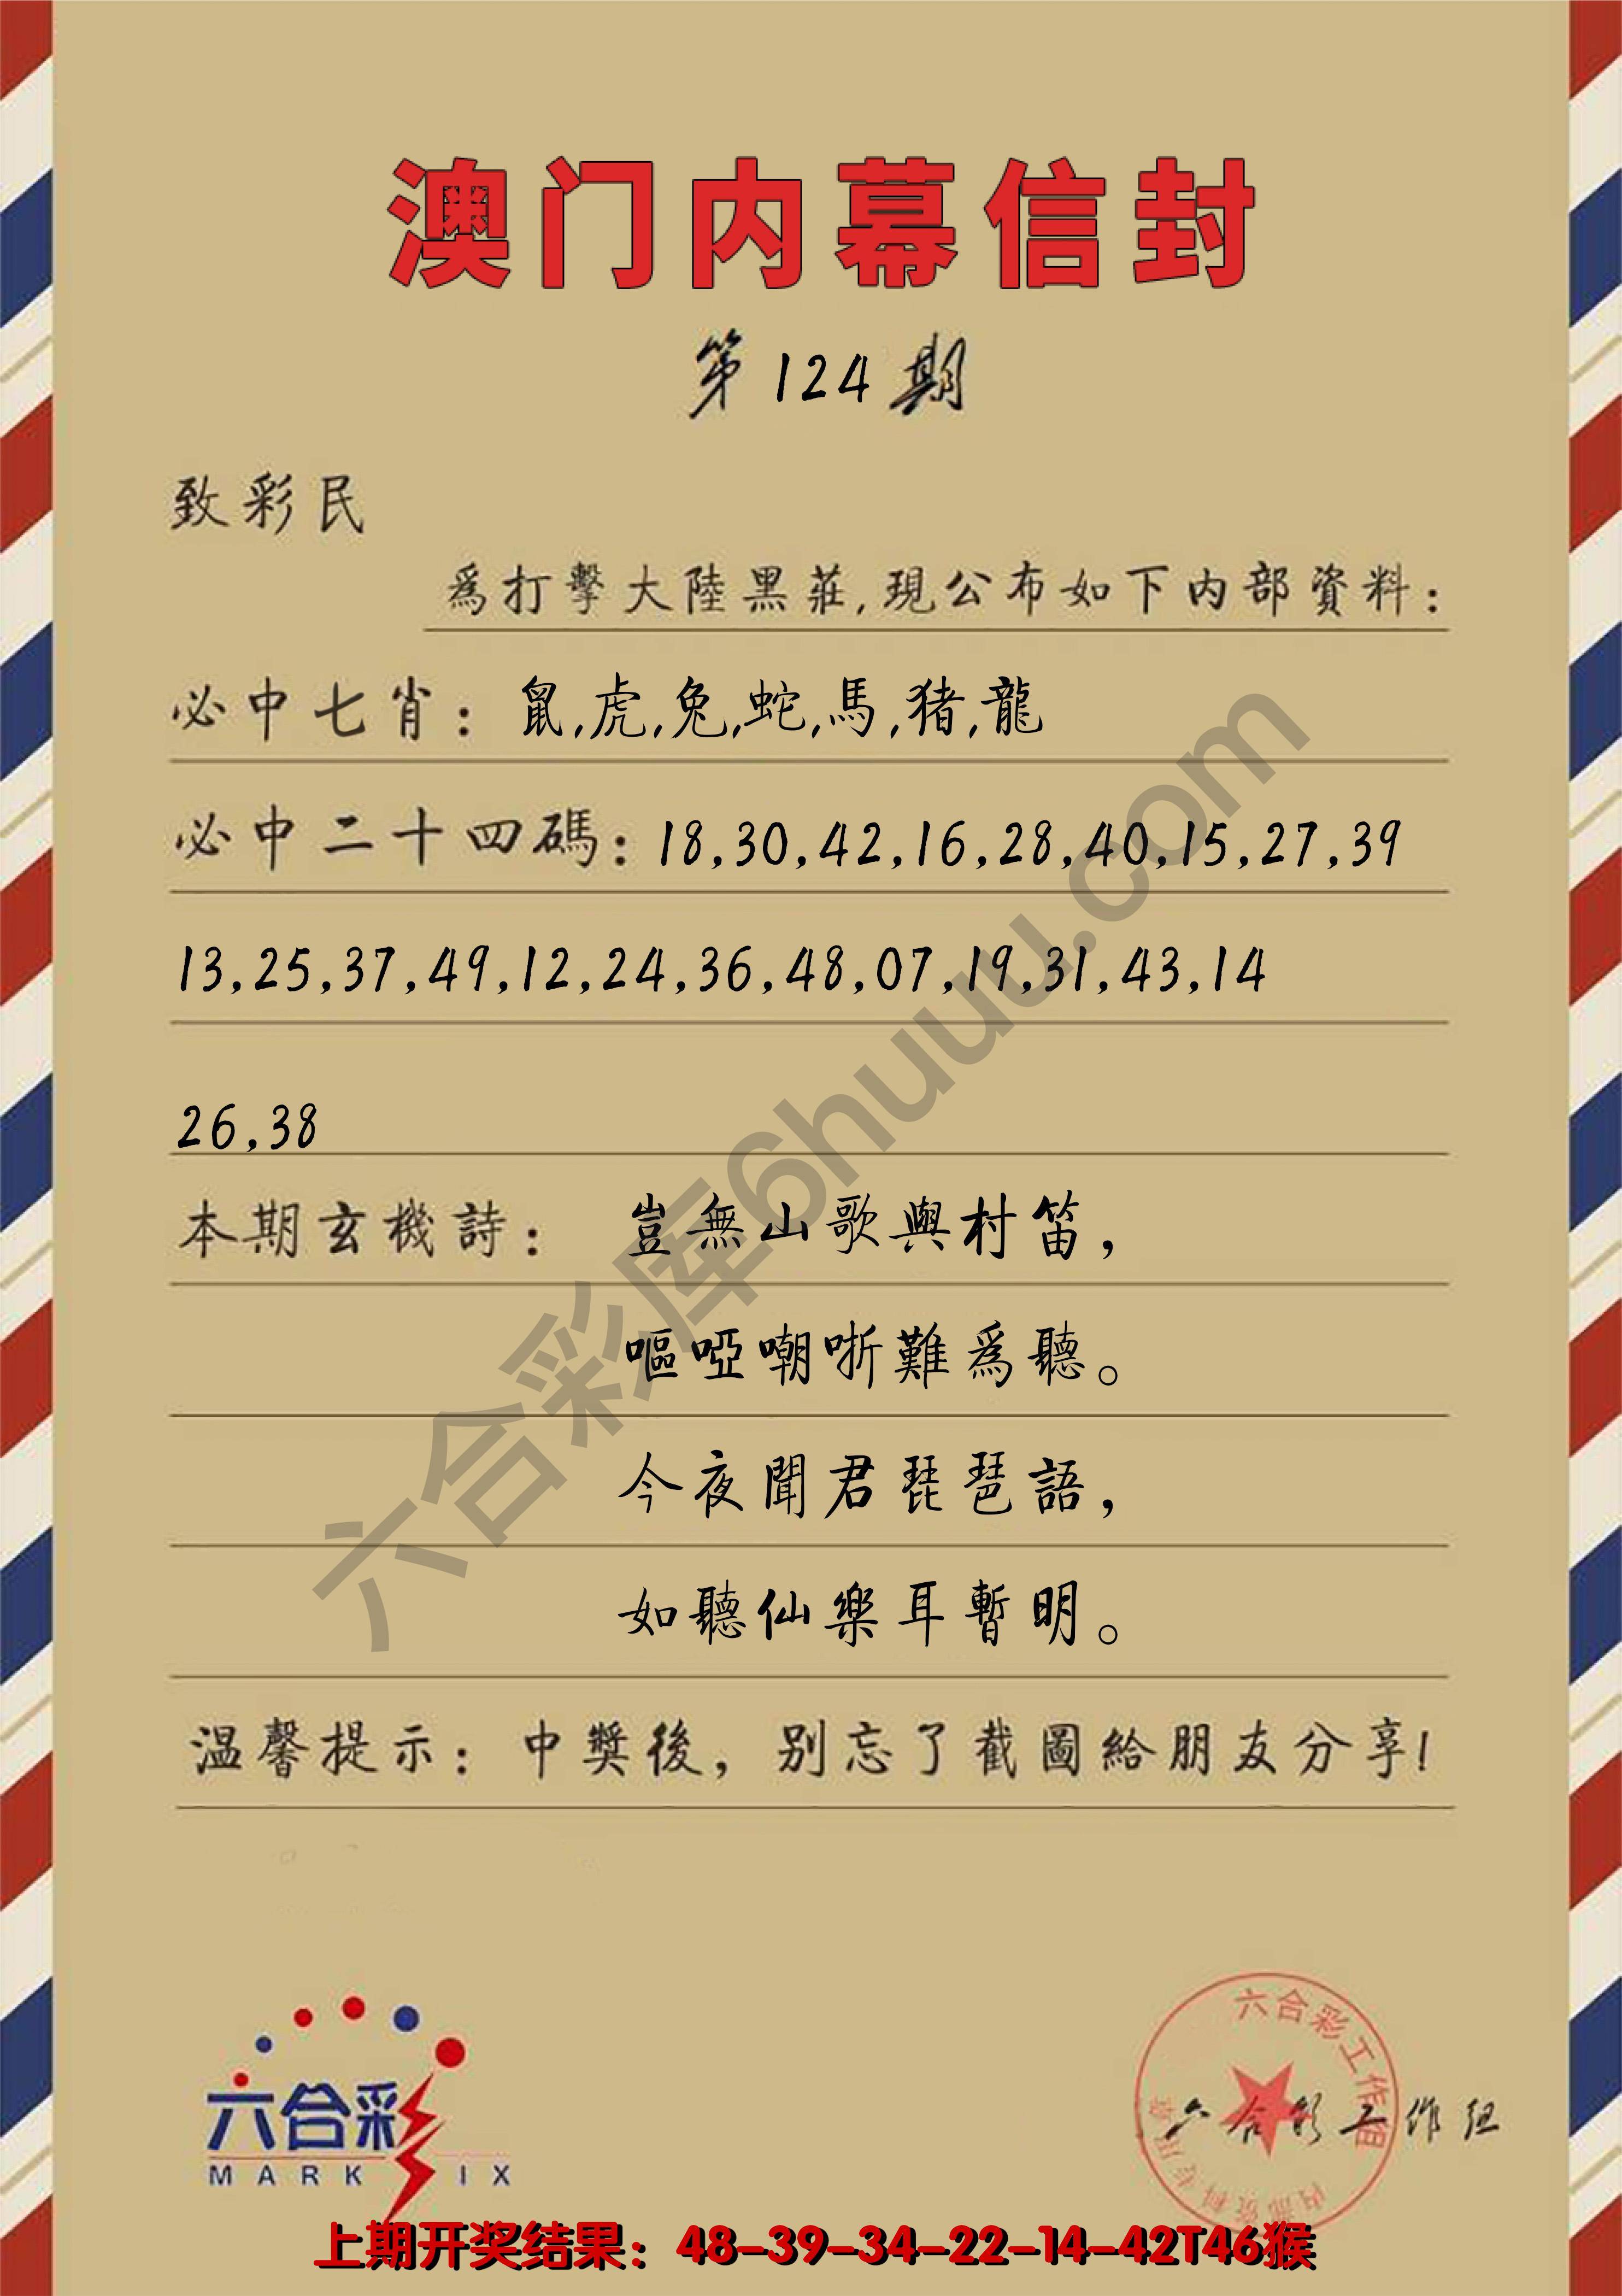 澳门内幕信封
第124期
致彩民
爲打擊大陸黑莊,現公布如下内部資料:
必中七肖: 鼠,虎,兔,蛇,馬,猪,龍
必中二十四碼: 18,30,42,16,28,40,15,27,39
13,25,37,49,12,24,36,48,07,19,31,43,14
26,38
本期玄機詩: 豈無山歌與村笛,
嘔啞嘲哳難爲聽。
今夜聞君琵琶語,
如聽仙樂耳暫明。
温馨提示: 中獎後, 别忘了截圖給朋友分享!
六合彩库6huuu.com
六合彩
MARK IX
六合彩工作组
内部资料专用章
六合彩工作组
上期开奖结果: 48-39-34-22-14-42T46猴